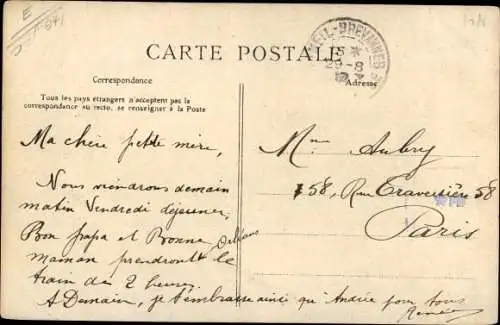 E
CARTE POSTALE
5 *
29-8
Correspondance
Adresse
Tous les pays étrangers n'acceptent pas la
correspondance au recto, se renseigner à la Poste
Ma chère petite mère,
Nous viendrons demain
matin Vendredi déjeuner,
Bon papa et Bonne
maman prendront le
train de 2 heures.
A Demain, je t'embrasse ainsi qu' Andrée pour tous
Renée
Mme Aubry
58, Rue Traversière 58
Paris